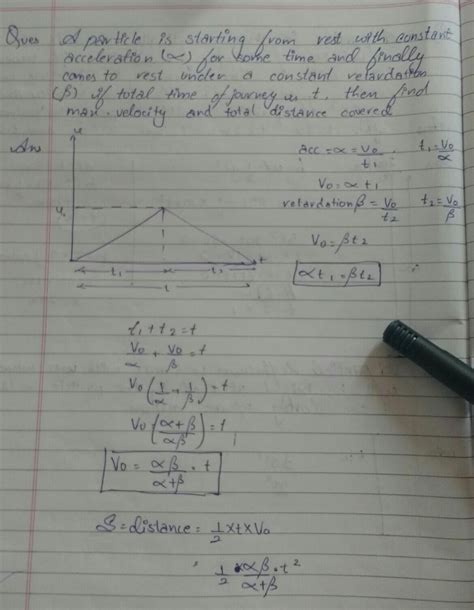 Ques A particle is starting from rest with constant
acceleration (α) for some time and finally
comes to rest under a constant retardation
(β) if total time of journey is t, then find
max. velocity and total distance covered
Ans
acc = α = V₀/t₁ . t₁ = V₀/α
V₀ = α t₁
retardation β = V₀/t₂ t₂ = V₀/β
V₀ = β t₂
αt₁ = βt₂
t
t₁ t₂
t
t₁ + t₂ = t
V₀/α + V₀/β = t
V₀ (1/α + 1/β) = t
V₀ (α+β/αβ) = t
V₀ = αβ/α+β . t
S = distance = 1/2 × t × V₀
= 1/2 × αβ/α+β . t²